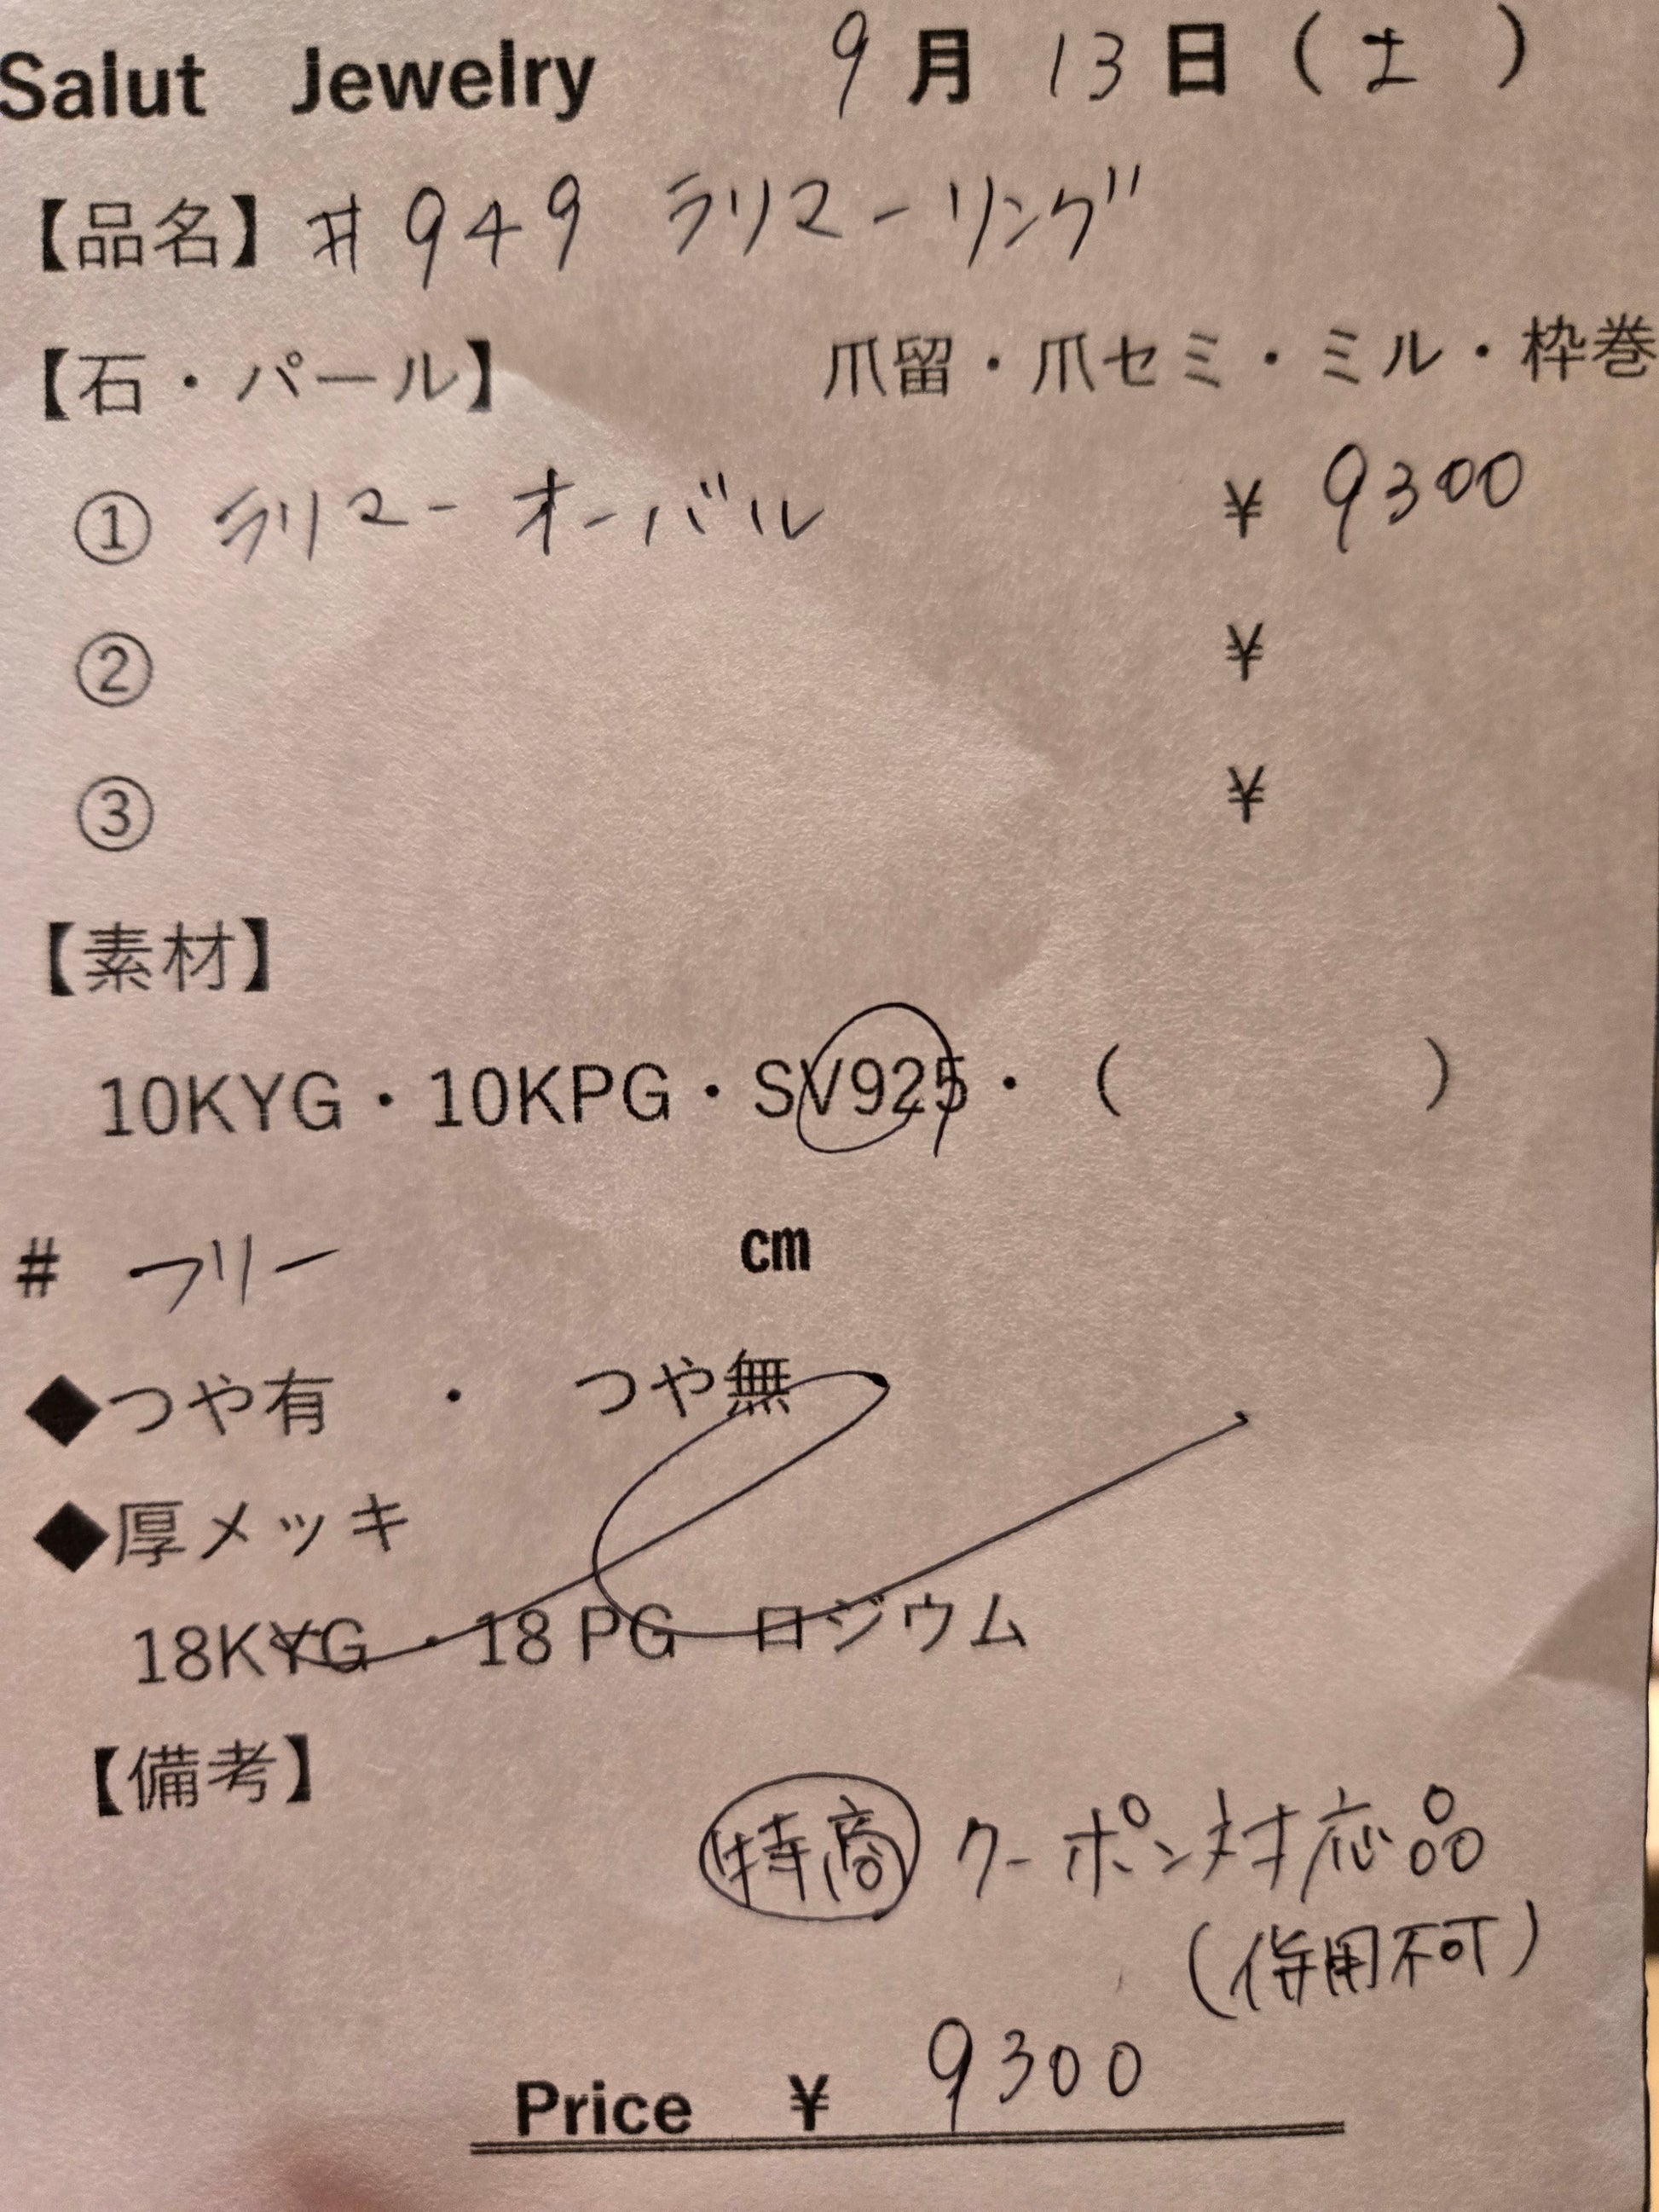 Salut Jewelry 9月13日(土)
【品名】#949 ラリマーリング
【石・パール】 爪留・爪セミ・ミル・枠巻
① ラリマー オーバル ¥ 9300
② ¥
③ ¥
【素材】
10KYG・10KPG・SV925・( )
# フリー cm
◆つや有 ・ つや無
◆厚メッキ
18KYG ・18 PG ロジウム
【備考】
特商 クーポン対応品
(併用不可)
Price ¥ 9300